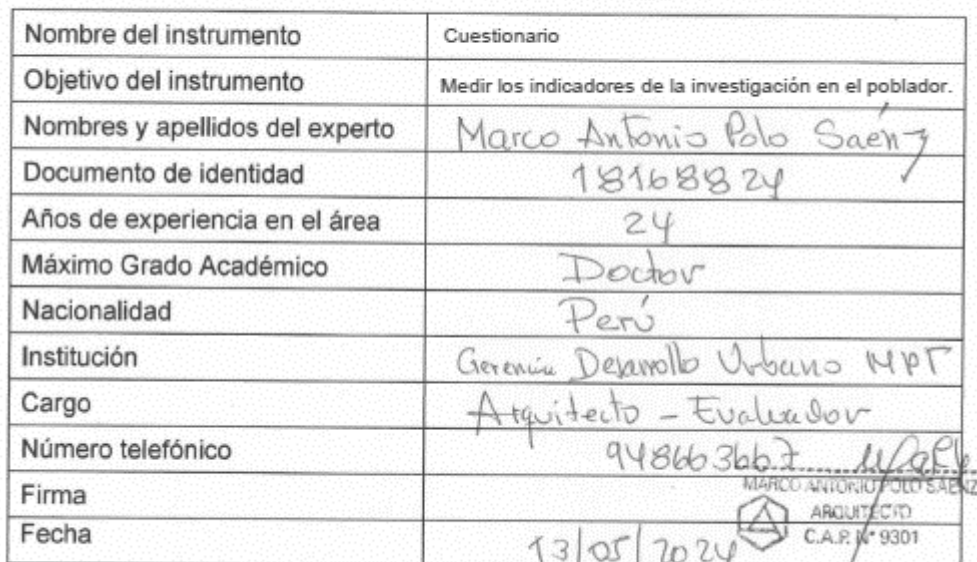 Nombre del instrumento Cuestionario
Objetivo del instrumento Medir los indicadores de la investigación en el poblador.
Nombres y apellidos del experto Marco Antonio Polo Saénz
Documento de identidad 18168824
Años de experiencia en el área 24
Máximo Grado Académico Doctor
Nacionalidad Perú
Institución Gerencia Desarrollo Urbano MPT
Cargo Arquitecto - Evaluador
Número telefónico 948663667
Firma
MARCO ANTONIO POLO SAENZ
ARQUITECTO
C.A.P. N° 9301
Fecha 13/05/2024